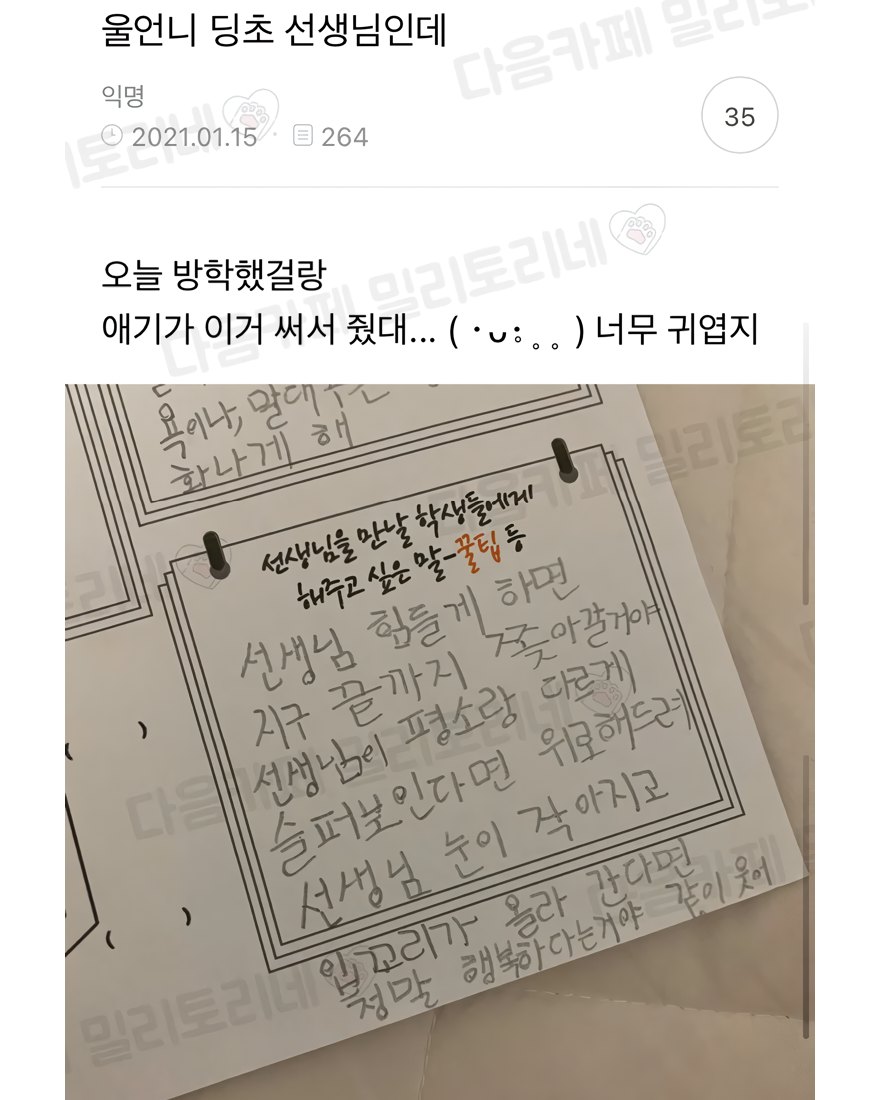 울언니 딩초 선생님인데
익명
2021.01.15 · 264
35
오늘 방학했걸랑
애기가 이거 써서 줬대... ( ･ᴗ: ｡｡ ) 너무 귀엽지
욕이나, 말대
화나게 해
선생님을 만날 학생들에게
해주고 싶은 말-꿀팁 등
선생님 힘들게 하면
지구 끝까지 쫒아갈거야
선생님이 평소랑 다르게
슬퍼보인다면 위로해드려
선생님 눈이 작아지고
입꼬리가 올라 간다면
정말 행복하다는거야 같이 웃어
다음카페 밀리토리네